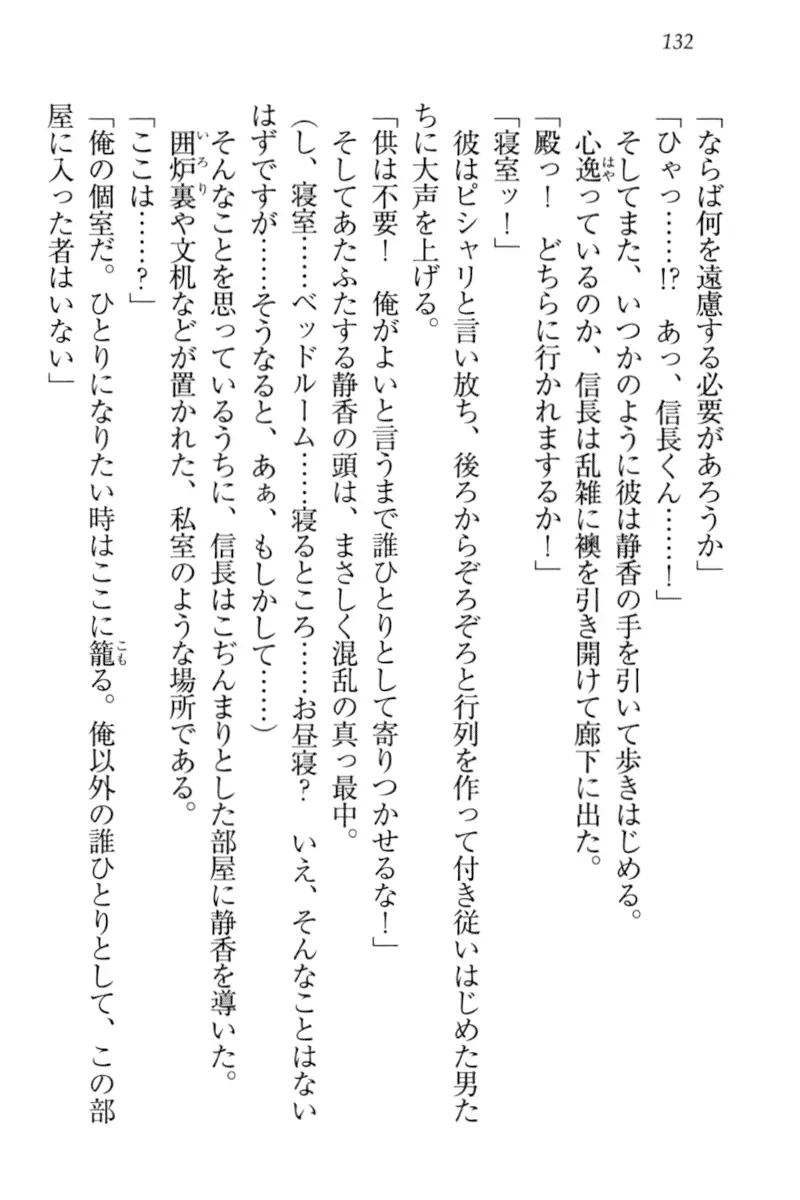 132
「ならば何を遠慮する必要があろうか」
「ひゃっ……!?　あっ、信長くん……！」
　そしてまた、いつかのように彼は静香の手を引いて歩きはじめる。
　心逸っているのか、信長は乱雑に襖を引き開けて廊下に出た。
はや
「殿っ！　どちらに行かれまするか！」
「寝室ッ！」
　彼はピシャリと言い放ち、後ろからぞろぞろと行列を作って付き従いはじめた男た
ちに大声を上げる。
「供は不要！　俺がよいと言うまで誰ひとりとして寄りつかせるな！」
　そしてあたふたする静香の頭は、まさしく混乱の真っ最中。
（し、寝室……ベッドルーム……寝るところ……お昼寝？　いえ、そんなことはない
はずですが……そうなると、あぁ、もしかして……）
　そんなことを思っているうちに、信長はこぢんまりとした部屋に静香を導いた。
　囲炉裏や文机などが置かれた、私室のような場所である。
いろり
「ここは……？」
「俺の個室だ。ひとりになりたい時はここに籠る。俺以外の誰ひとりとして、この部
こも
屋に入った者はいない」